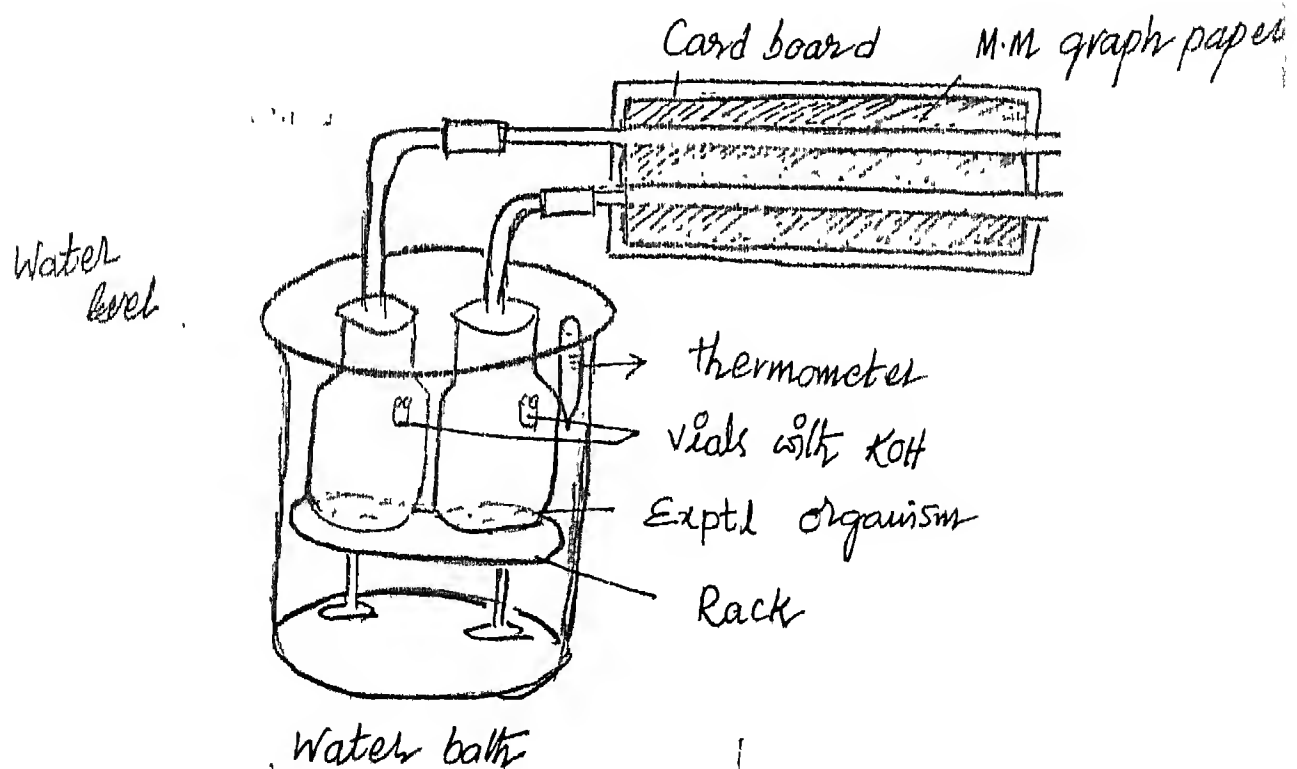 Card board
M.M graph paper
Water
level
thermometer
vials with KOH
Exptl organism
Rack
Water bath